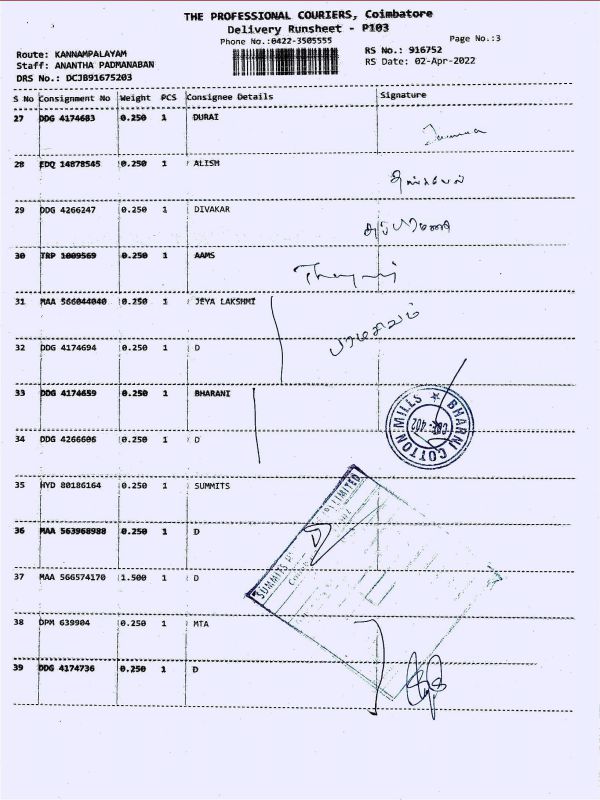 THE PROFESSIONAL COURIERS, Coimbatore
Delivery Runsheet - P103
Phone No.:0422-3505555
Page No.:3
Route: KANNAMPALAYAM
RS No.: 916752
Staff: ANANTHA PADMANABAN
RS Date: 02-Apr-2022
DRS No.: DCJB91675203
S No Consignment No Weight PCS Consignee Details Signature
27 DDG 4174683 0.250 1 DURAI
28 EDQ 14878545 0.250 1 ALISM
29 DDG 4266247 0.250 1 DIVAKAR
30 TRP 1009569 0.250 1 AAMS
31 MAA 566044040 0.250 1 JEYA LAKSHMI
32 DDG 4174694 0.250 1 D
33 DDG 4174659 0.250 1 BHARANI
BHARNI COTTON MILLS
CBE-402
34 DDG 4266606 0.250 1 D
35 HYD 80186164 0.250 1 SUMMITS
SUMMITS LIMITED
36 MAA 563968988 0.250 1 D
37 MAA 566574170 1.500 1 D
38 DPM 639904 0.250 1 MTA
39 DDG 4174736 0.250 1 D